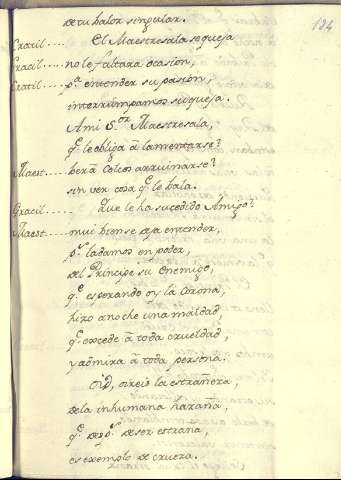 184
de tu balor singular.
Cracil.... El Maestresala se queja
Gracil.... no le faltara ocasion,
Cratil.... p.ª entender su pasion,
interrumpamos su queja.
A mi S.or Maestresala,
q.e le obliga â lamentarse?
Maest... berâ Colcos arruinarse?
sin ver cosa q.e le bala.
Gracil...... Que le ha sucedido Amigo?
Maest... mui bien se deja entender,
p.r la Dama en poder,
del Principe su enemigo,
q.e esperando oy la Corona,
hizo anoche una maldad,
q.e excede â toda crueldad,
y admira â toda persona.
Oid, oireis la estrañera,
de la inhumana hazaña,
q.e de p.r de ser estraña,
es exemplo de crueza.